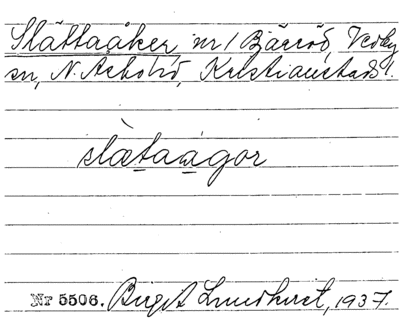 Slättaåker, nr 1 Bjärröd, Vedby
sn, N. Åsbo hd, Kristianstads l.
slätaågor
Nr 5506. Birgit Lundkvist, 1937.